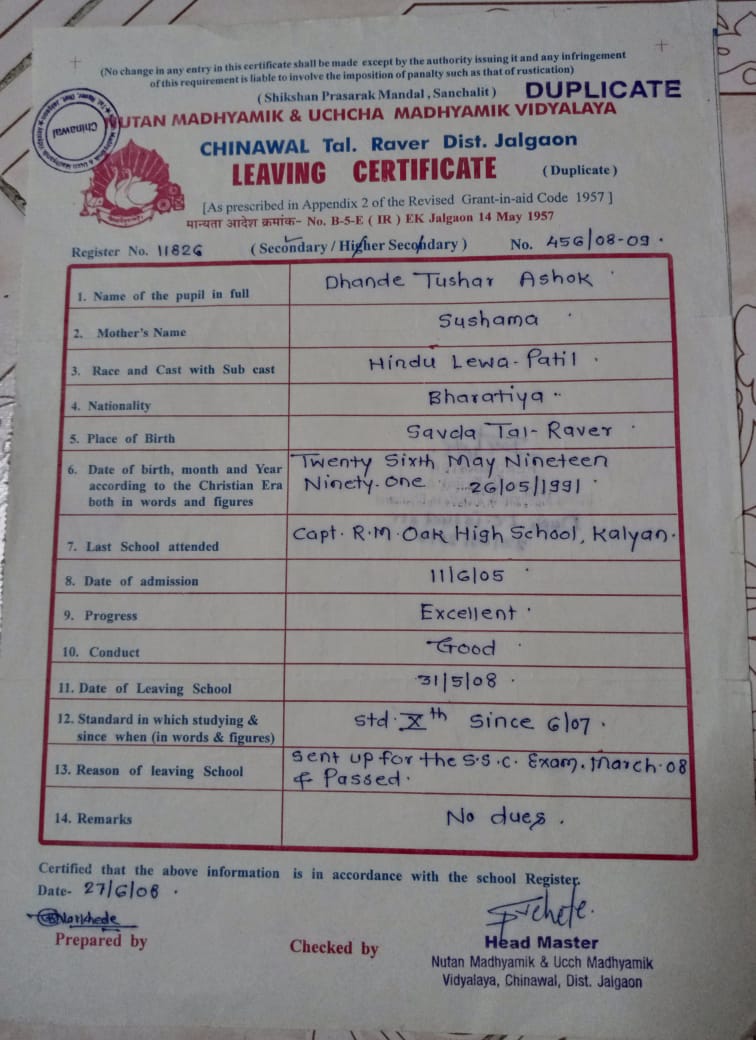 (No change in any entry in this certificate shall be made except by the authority issuing it and any infringement
of this requirement is liable to involve the imposition of panalty such as that of rustication)
(Shikshan Prasarak Mandal, Sanchalit) DUPLICATE
NUTAN MADHYAMIK & UCHCHA MADHYAMIK VIDYALAYA
Chinawal
CHINAWAL Tal. Raver Dist. Jalgaon
LEAVING CERTIFICATE (Duplicate)
[As prescribed in Appendix 2 of the Revised Grant-in-aid Code 1957]
मान्यता आदेश क्रमांक- No. B-5-E (IR) EK Jalgaon 14 May 1957
Register No. 11826 (Secondary / Higher Secondary) No. 456/08-09.
1. Name of the pupil in full Dhande Tushar Ashok
2. Mother's Name Sushama
3. Race and Cast with Sub cast Hindu Lewa-Patil
4. Nationality Bharatiya
5. Place of Birth Savda Tal-Raver
6. Date of birth, month and Year Twenty Sixth May Nineteen
according to the Christian Era Ninety-One 26/05/1991
both in words and figures
7. Last School attended Capt. R.M. Oak High School, Kalyan.
8. Date of admission 11/6/05
9. Progress Excellent
10. Conduct Good
11. Date of Leaving School 31/5/08
12. Standard in which studying & Std. Xth Since 6/07.
since when (in words & figures)
13. Reason of leaving School Sent up for the S.S.C. Exam. March-08
& Passed.
14. Remarks No dues.
Certified that the above information is in accordance with the school Register.
Date- 27/6/08.
Prepared by Checked by Head Master
Nutan Madhyamik & Ucch Madhyamik
Vidyalaya, Chinawal, Dist. Jalgaon